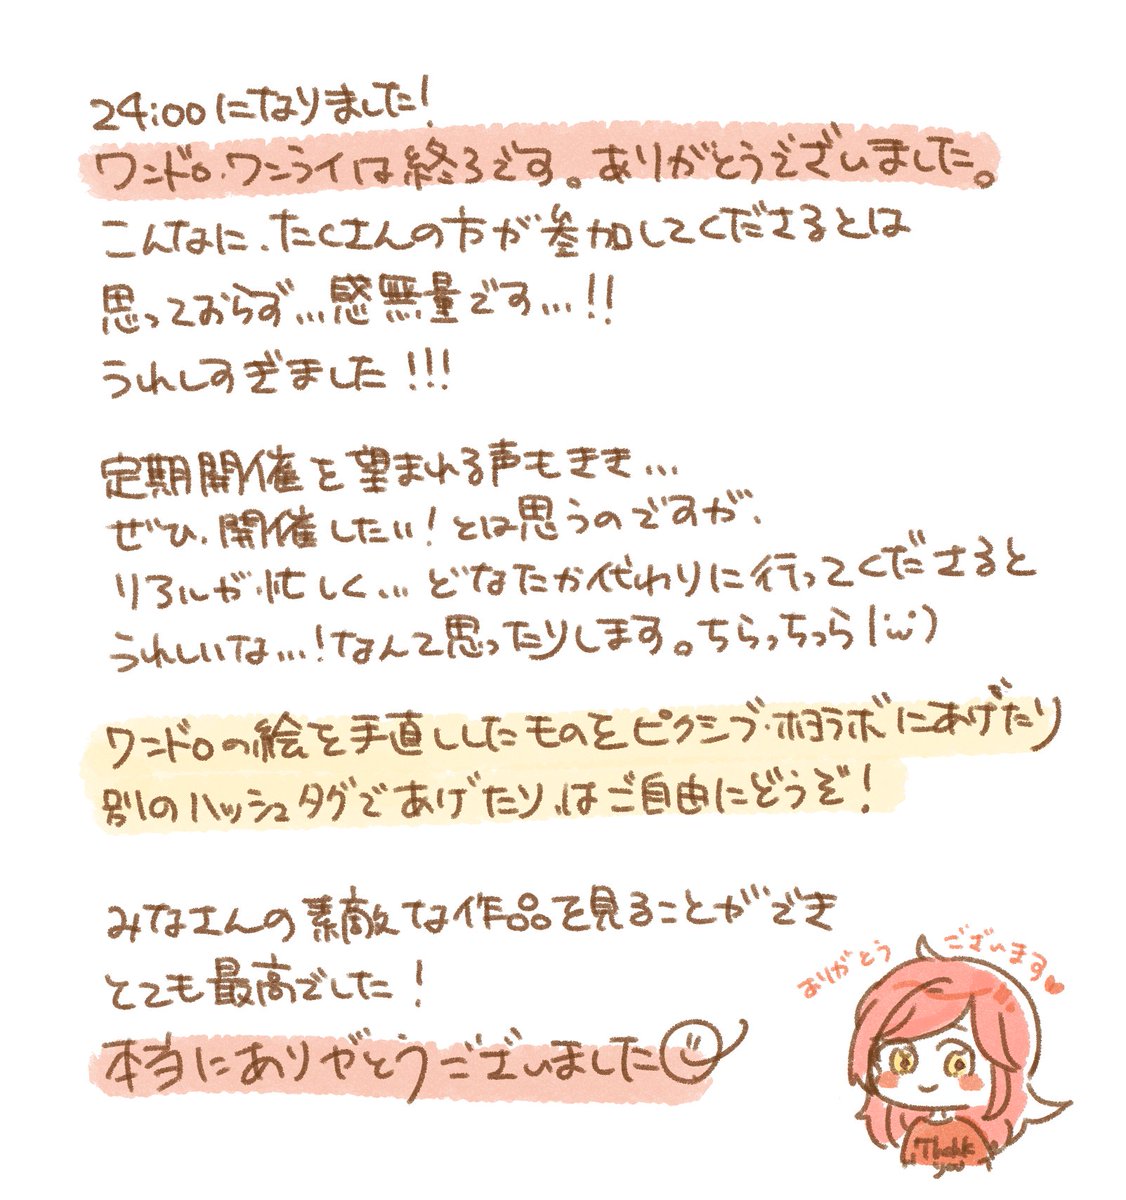 24:00になりました!
ワンドロ・ワンライは終了です。ありがとうございました。
こんなに、たくさんの方が参加してくださるとは
思っておらず…感無量です…!!
うれしすぎました!!!
定期開催を望まれる声もきき…
ぜひ、開催したい!とは思うのですが、
リアルが忙しく…どなたか代わりに行ってくださると
うれしいな…!なんて思ったりします。ちらっちっら(˙ω˙)
ワンドロの絵を手直ししたものをピクシブ・ポヨラボにあげたり
別のハッシュタグであげたり、はご自由にどうぞ!
みなさんの素敵な作品を見ることができ
とても最高でした!
本当にありがとうございました
ありがとうございます♥
Thank
you